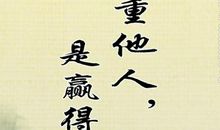 重他人，
是赢得